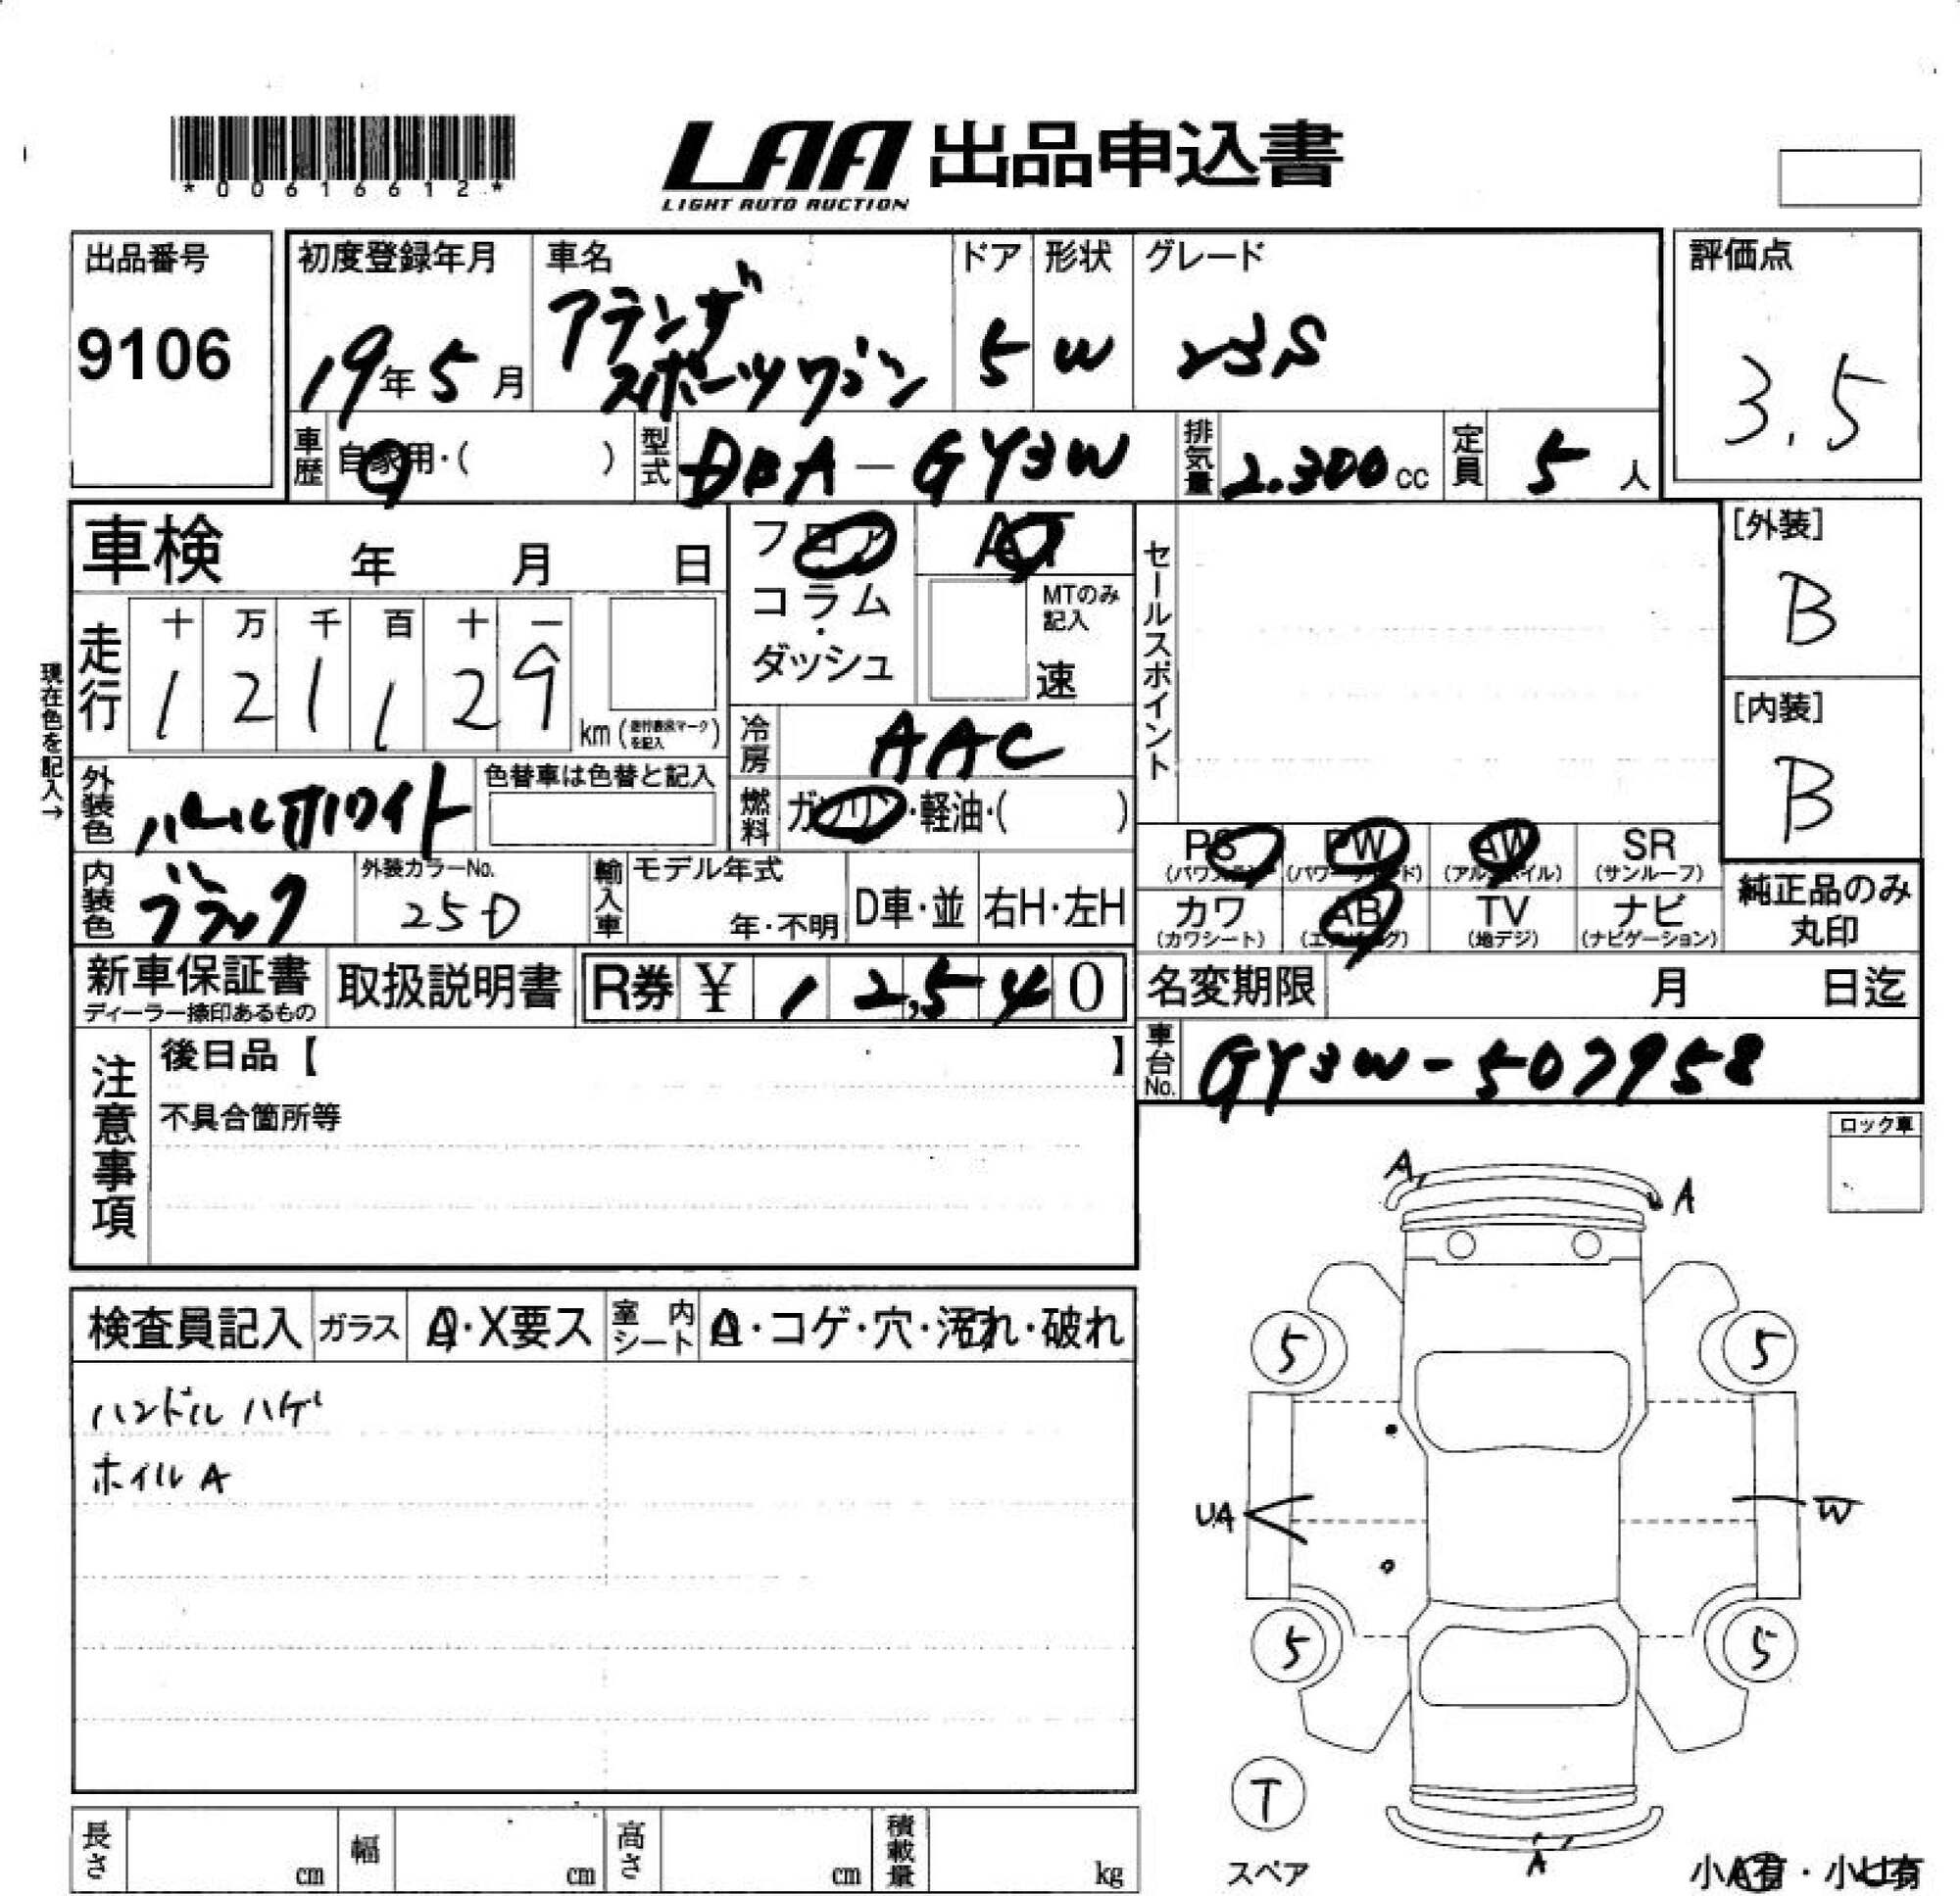 *00616612*
LAA 出品申込書
LIGHT AUTO AUCTION
出品番号
9106
初度登録年月
19年5月
車名
アテンザ
スポーツワゴン
ドア
5
形状
W
グレード
23S
評価点
3.5
車歴
自家用・( )
型式
DBA-GY3W
排気量
2.300cc
定員
5人
車検 年 月 日
フロア
コラム
・
ダッシュ
AT
MTのみ
記入
速
セールスポイント
[外装]
B
[内装]
B
現在色を記入→
走行
十 万 千 百 十 一
1 2 1 1 2 9
km (走行表示マークを記入)
冷房
AAC
燃料
ガソリン・軽油・( )
外装色
パールホワイト
色替車は色替と記入
内装色
ブラック
外装カラーNo.
25D
輸入車
モデル年式
年・不明
D車・並
右H・左H
PS PW AW SR
(パワステ) (パワーウィンド) (アルミホイル) (サンルーフ)
カワ AB TV ナビ
(カワシート) (エアバッグ) (地デジ) (ナビゲーション)
純正品のみ
丸印
新車保証書
ディーラー捺印あるもの
取扱説明書
R券 ¥ 12,540
名変期限 月 日迄
車台No.
GY3W-507958
注意事項
後日品【 】
不具合箇所等
ロック車
検査員記入
ガラス
A・X要ス
室内シート
A・コゲ・穴・汚れ・破れ
ハンドルハゲ
ホイルA
A
A
5
5
UA
W
5
5
T
スペア
A
小A有・小U有
長さ cm
幅 cm
高さ cm
積載量 kg